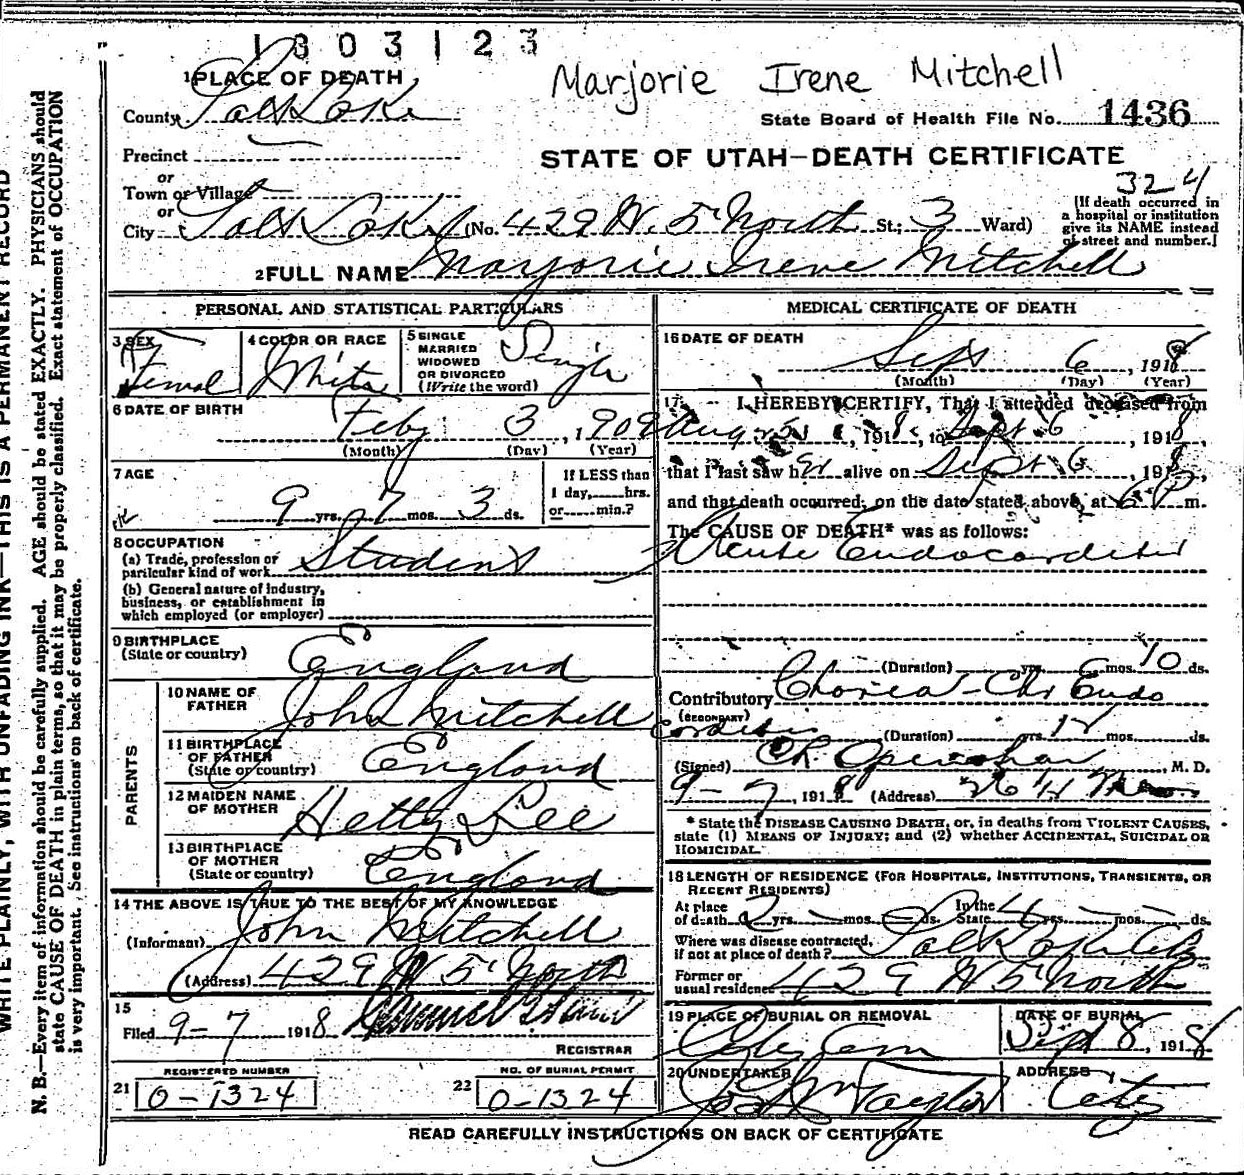 1803123
Marjorie Irene Mitchell
State Board of Health File No. 1436
STATE OF UTAH—DEATH CERTIFICATE
324
1 PLACE OF DEATH
County Salt Lake
Precinct
or
Town or Village
or
City Salt Lake (No. 429 W. 5 North St; 3 Ward)
[If death occurred in
a hospital or institution
give its NAME instead
of street and number.]
2 FULL NAME Marjorie Irene Mitchell
PERSONAL AND STATISTICAL PARTICULARS
3 SEX
Femal
4 COLOR OR RACE
White
5 SINGLE
MARRIED
WIDOWED
OR DIVORCED
(Write the word)
Single
6 DATE OF BIRTH
Feby 3, 1909
(Month) (Day) (Year)
7 AGE
9 yrs. 7 mos. 3 ds.
If LESS than
1 day, hrs.
or min.?
8 OCCUPATION
(a) Trade, profession or
particular kind of work Student
(b) General nature of industry,
business, or establishment in
which employed (or employer)
9 BIRTHPLACE
(State or country) England
PARENTS
10 NAME OF
FATHER John Mitchell
11 BIRTHPLACE
OF FATHER
(State or country) England
12 MAIDEN NAME
OF MOTHER Hetty Lee
13 BIRTHPLACE
OF MOTHER
(State or country) England
14 THE ABOVE IS TRUE TO THE BEST OF MY KNOWLEDGE
(Informant) John Mitchell
(Address) 429 W 5' North
15
Filed 9-7 1918
REGISTRAR
REGISTERED NUMBER
21 0-1324
NO. OF BURIAL PERMIT
22 0-1324
MEDICAL CERTIFICATE OF DEATH
16 DATE OF DEATH
Sept 6, 1918
(Month) (Day) (Year)
17 I HEREBY CERTIFY, That I attended deceased from
Aug, 1918, to Sept 6, 1918,
that I last saw her alive on Sept 6, 1918,
and that death occurred, on the date stated above, at 6 P m.
The CAUSE OF DEATH* was as follows:
Acute Endocarditis
(Duration) yrs. mos. 10 ds.
Contributory Chorea - Chr Endo
(SECONDARY)
carditis (Duration) yrs. mos. ds.
(Signed) M. D.
9-7, 1918 (Address)
* State the DISEASE CAUSING DEATH, or, in deaths from VIOLENT CAUSES,
state (1) MEANS OF INJURY; and (2) whether ACCIDENTAL, SUICIDAL OR
HOMICIDAL.
18 LENGTH OF RESIDENCE (FOR HOSPITALS, INSTITUTIONS, TRANSIENTS, OR
RECENT RESIDENTS)
At place
of death 2 yrs. — mos. — ds. In the
State 4 yrs. — mos. — ds.
Where was disease contracted,
if not at place of death? Salt Lake City
Former or
usual residence 429 W 5' North
19 PLACE OF BURIAL OR REMOVAL
City Cem
DATE OF BURIAL
Sept 8, 1918
20 UNDERTAKER
Taylor
ADDRESS
City
READ CAREFULLY INSTRUCTIONS ON BACK OF CERTIFICATE
WRITE PLAINLY, WITH UNFADING INK—THIS IS A PERMANENT RECORD
N. B.—Every item of information should be carefully supplied. AGE should be stated EXACTLY. PHYSICIANS should
state CAUSE OF DEATH in plain terms, so that it may be properly classified. Exact statement of OCCUPATION
is very important. See instructions on back of certificate.